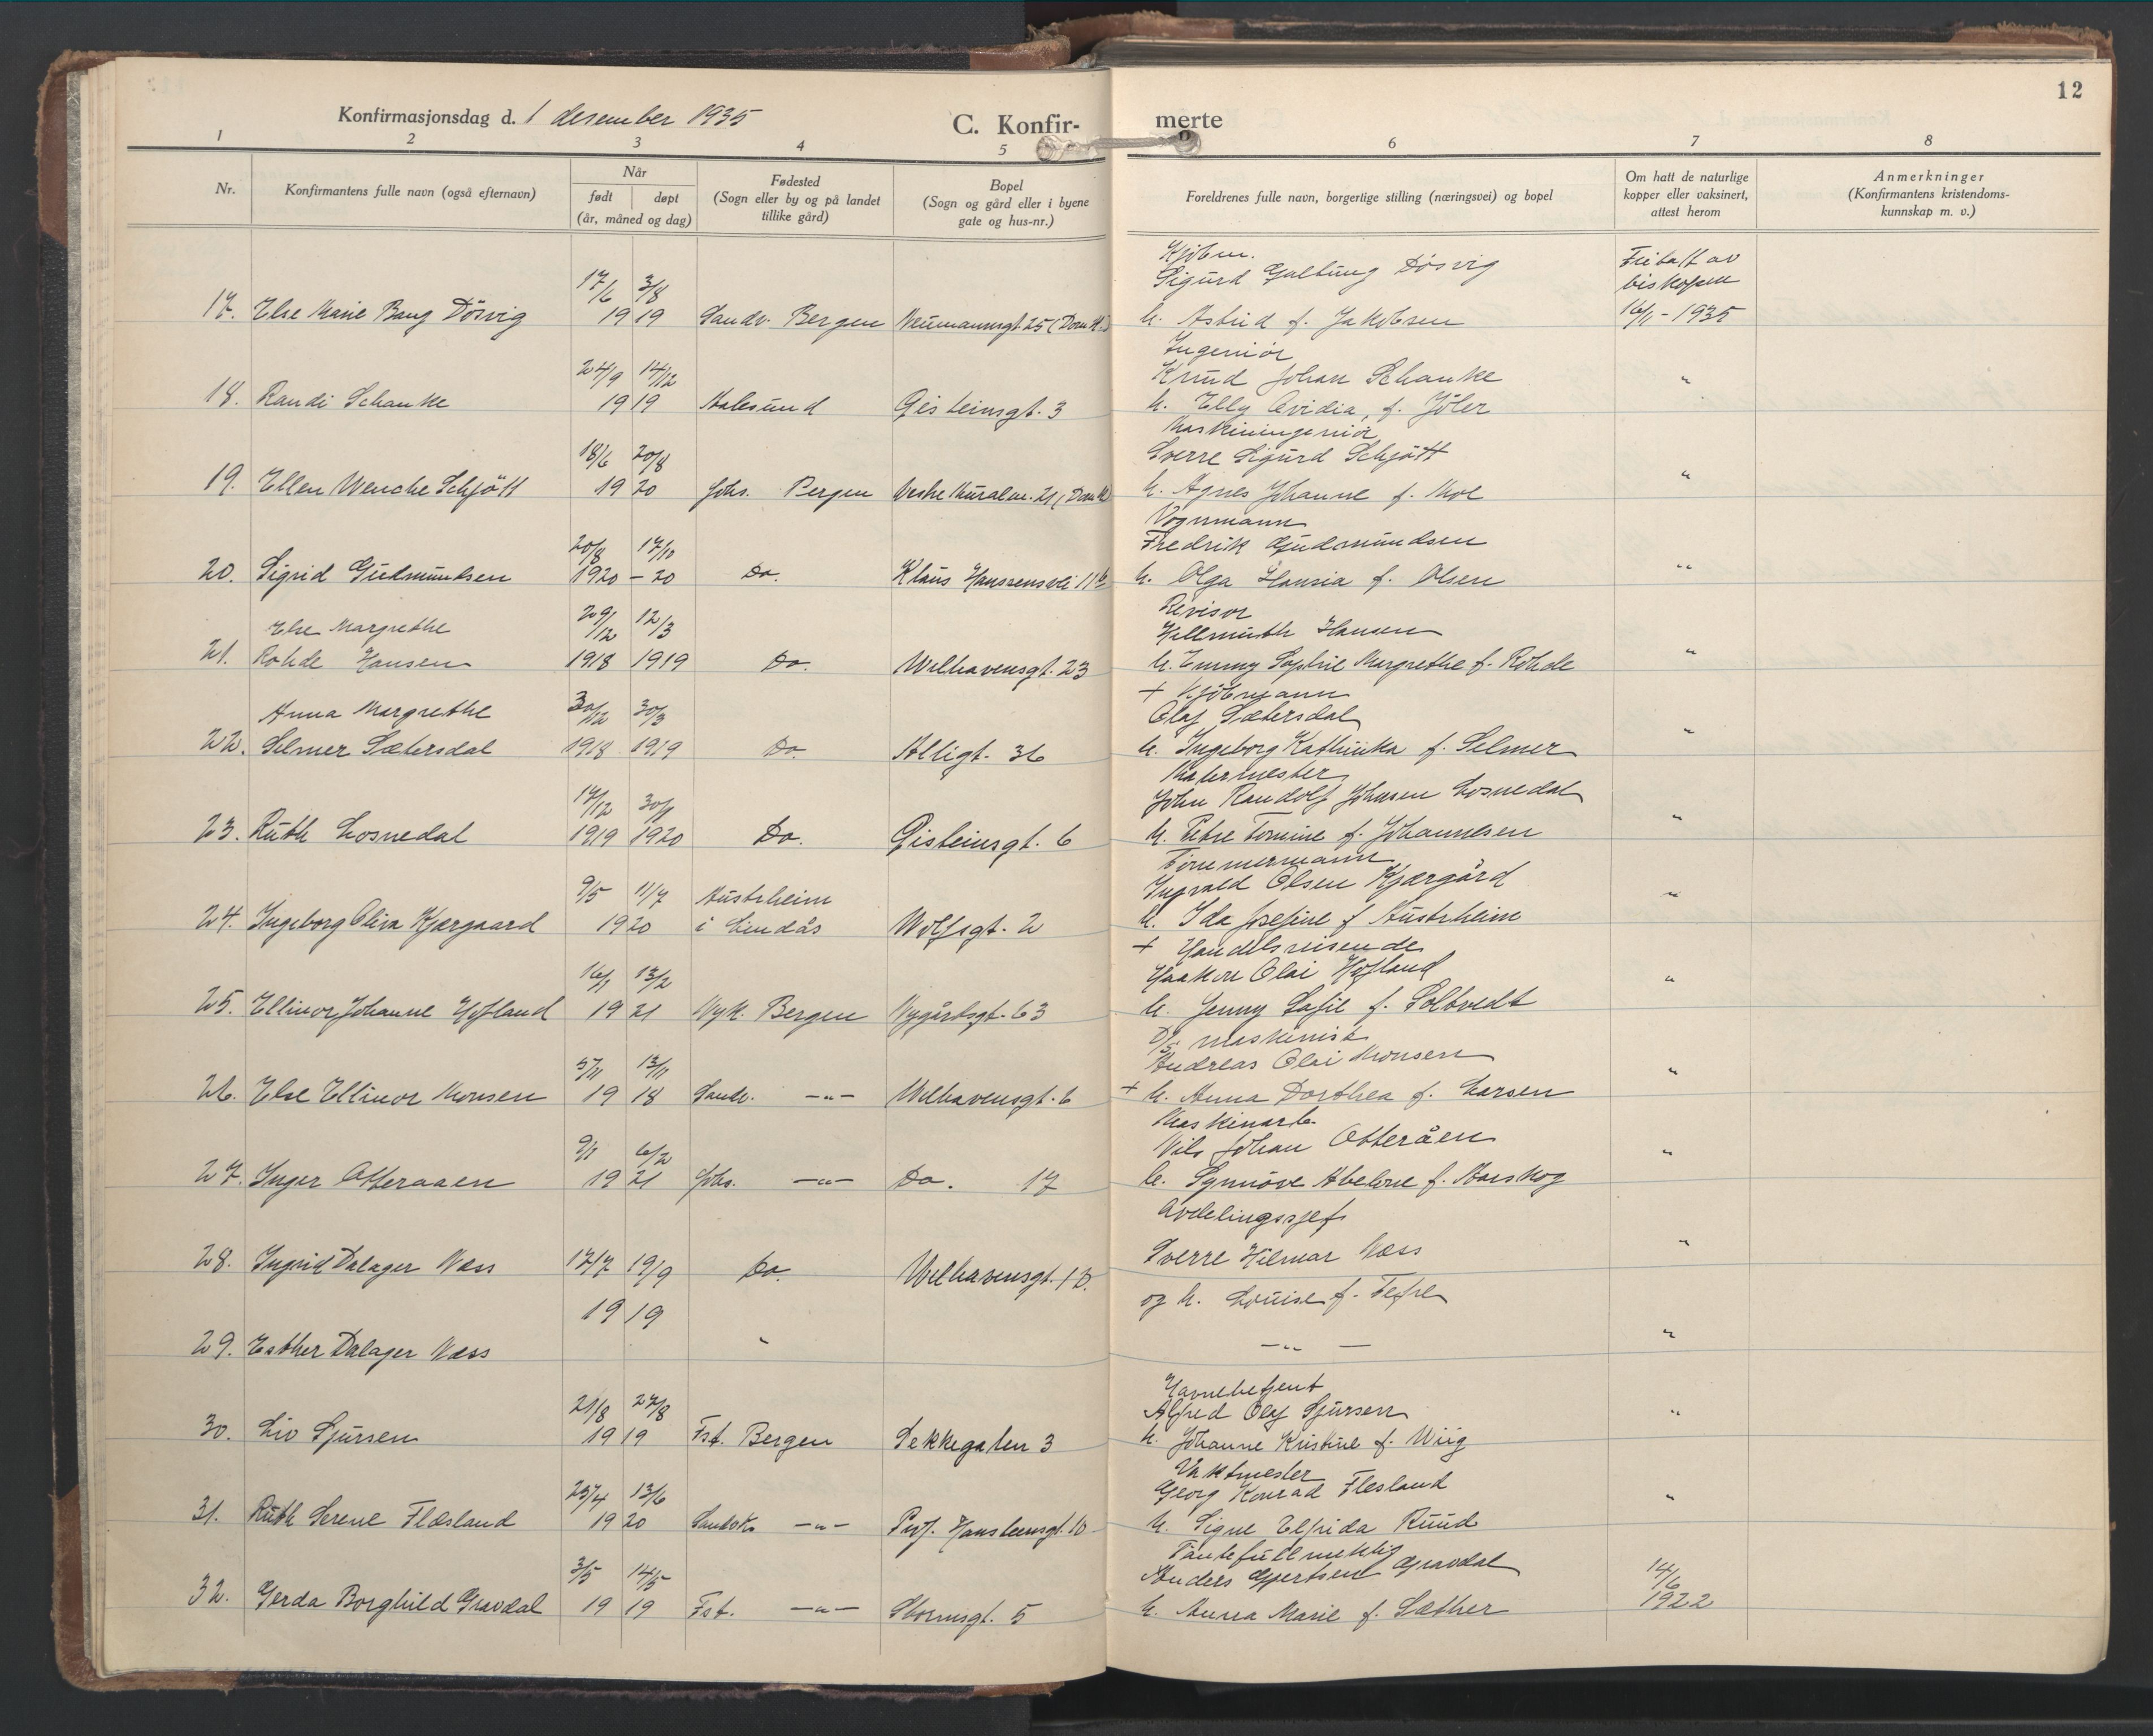 12
Konfirmasjonsdag d. 1 desember 1935
C. Konfir-
merte
1 2 3 4 5 6 7 8
Nr.
Konfirmantens fulle navn (også efternavn)
Når
født døpt
(år, måned og dag)
Fødested
(Sogn eller by og på landet
tillike gård)
Bopel
(Sogn og gård eller i byene
gate og hus-nr.)
Foreldrenes fulle navn, borgerlige stilling (næringsvei) og bopel
Om hatt de naturlige
kopper eller vaksinert,
attest herom
Anmerkninger
(Konfirmantens kristendoms-
kunnskap m. v.)
Kjøbm.
17/6 3/8 Sigurd Galtung Dösvig Fritatt av
biskopen
17. Else Marie Bang Dösvig 19 19 Sandv. Bergen Neumannsgt 25 (Domk.) h. Astrid f. Jakobsen 16/1 - 1935
Ingeniör
24/9 14/12 Knud Johan Schanke "
18. Randi Schanke 19 19 Aalesund Gisteinsgt. 3 h. Elly Ovidia, f. Jöler
Maskiningeniör
18/6 20/8 Sverre Sigurd Schjött "
19. Ellen Wenche Schjött 19 20 Johs. Bergen Vestre Muralm. 21 (Domk) h. Agnes Johanne f. Moe
Vognmann
20/8 17/10 Fredrik Gudmundsen
20. Sigrid Gudmundsen 1920 - 20 Do. Klaus Hanssensvei 11b h. Olga Hansia f. Olsen "
Revisor
Else Margrethe 29/12 12/3 Hellmuth Hansen
21. Rohde Hansen 1918 1919 Do. Welhavensgt. 23 h. Emmy Sophie Margrethe f. Rohde "
+ Kjöbmann
Anna Margrethe 30/12 30/3 Olaf Sætersdal
22. Selmer Sætersdal 1918 1919 Do. Alligt. 36 h. Ingeborg Kathinka f. Selmer "
Malermester
17/12 30/1 John Randolf Johnsen Losnedal
23. Ruth Losnedal 1919 1920 Do. Gisteinsgt. 6 h. Petre Tomine f. Johannesen "
Tömmermann
9/5 11/7 Austrheim Ingvald Olsen Kjærgård
24. Ingeborg Oliva Kjærgaard 19 20 i Lindås Wolfsgt. 2 h. Ida Josefine f Austrheim "
+ Handelsreisende
16/1 13/2 Haakon Olai Hofland
25. Ellinor Johanne Hofland 19 21 Nyk. Bergen Nygårdsgt. 63 h. Jenny Sofie f. Soltvedt "
D/S maskinist
3/11 13/11 Andreas Olai Monsen
26. Else Ellinor Monsen 19 18 Sandv. -"- Welhavensgt. 6 + h. Anna Dorthea f. Larsen "
Maskinarb.
9/1 6/2 Nils Johan Otteråen
27. Inger Otteraaen 19 21 Johs. -"- Do. 17 h. Synnöve Abelone f. Aarskog "
Avdelingssjef
28. Ingrid Dalager Næss 17/7 19/9 Do. Welhavensgt. 1 b. Sverre Hilmar Næss "
19 19 og h. Louise f.
29. Esther Dalager Næss " -"- "
Havnebetjent
21/8 27/8 Alfred Olaf Sjursen
30. Liv Sjursen 19 19 Fst. Bergen Dekkegaten 3 h. Johanne Kristine f. Wiig "
Vaktmester
25/4 13/6 Georg Konrad Flesland
31. Ruth Serene Flæsland 19 20 Sandvk. -"- Prof. Hansteensgt. 10 h. Signe Elfrida Ruud "
Pantefullmektig
3/5 14/5 Anders Gjertsen Gravdal 14/6
32. Gerda Borghild Gravdal 19 19 Fst. -"- Stormsgt. 5 h. Anna Marie f. Sæther 1922